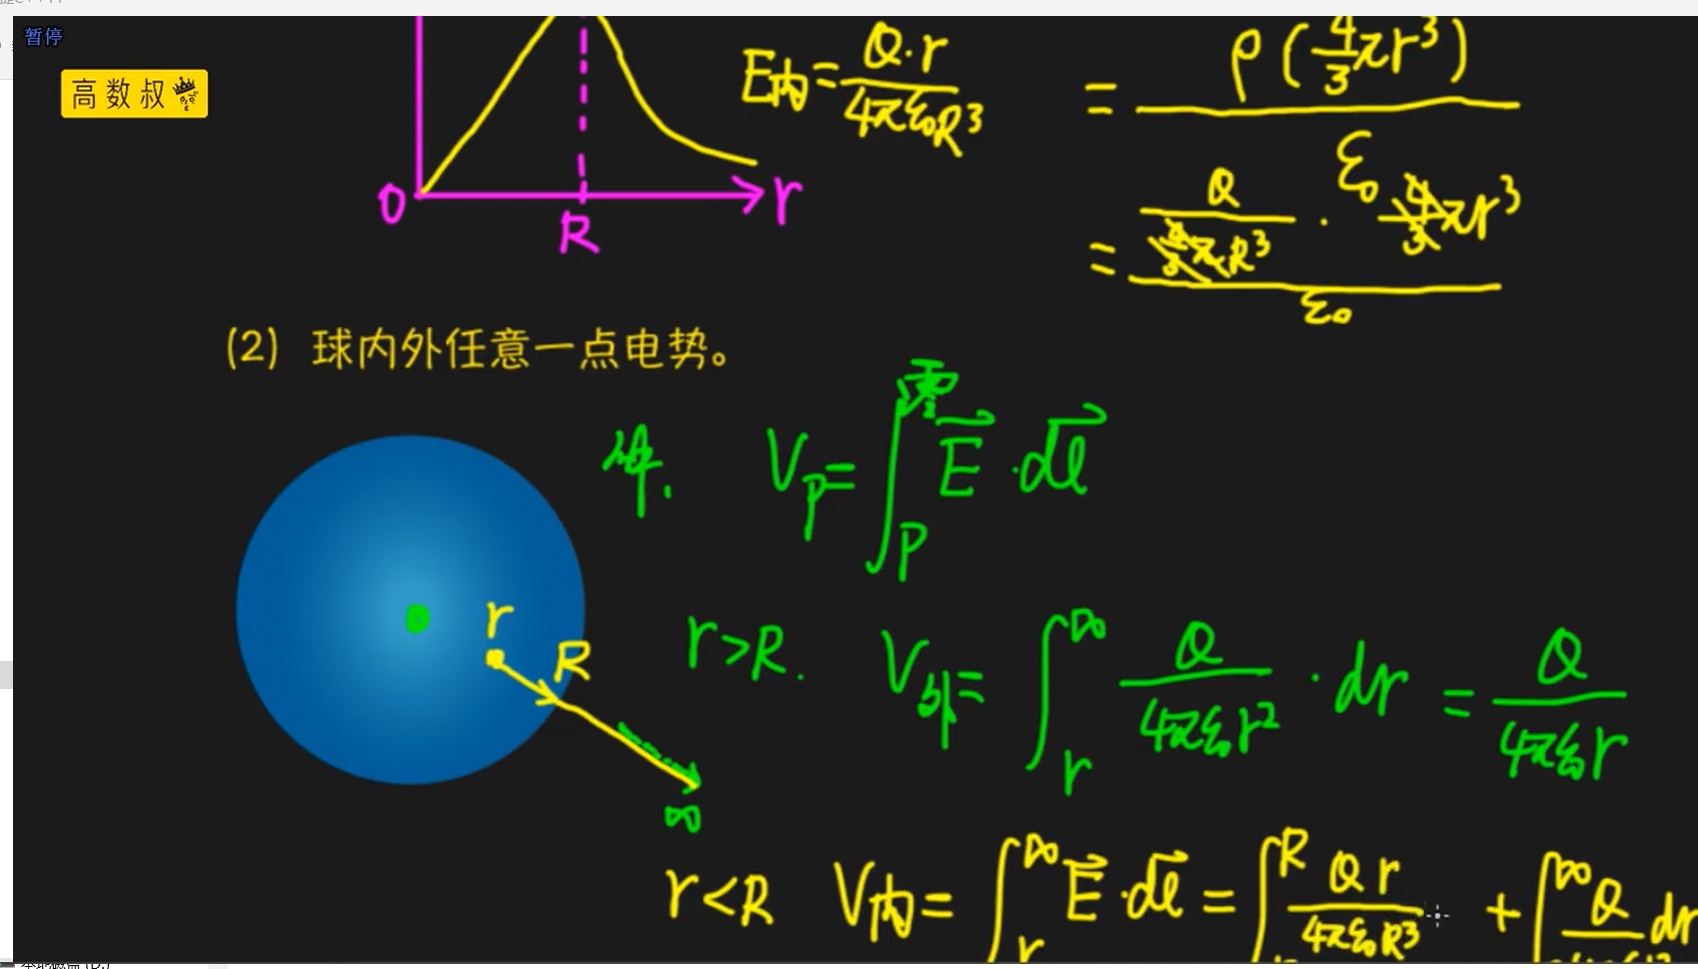 暂停
高数叔
E内 = Q·r / 4πε₀R³ = ρ(4/3 πr³) / ε₀
O R r
= Q / (4/3 πR³) · 4/3 πr³ / ε₀
(2) 球内外任意一点电势。
外. V_P = ∫_P^零势 E⃗ · dl⃗
O r R ∞
r>R. V外 = ∫_r^∞ Q / 4πε₀r² · dr = Q / 4πε₀r
r<R V内 = ∫_r^∞ E⃗ · dl⃗ = ∫^R Qr / 4πε₀R³ + ∫^∞ Q dr